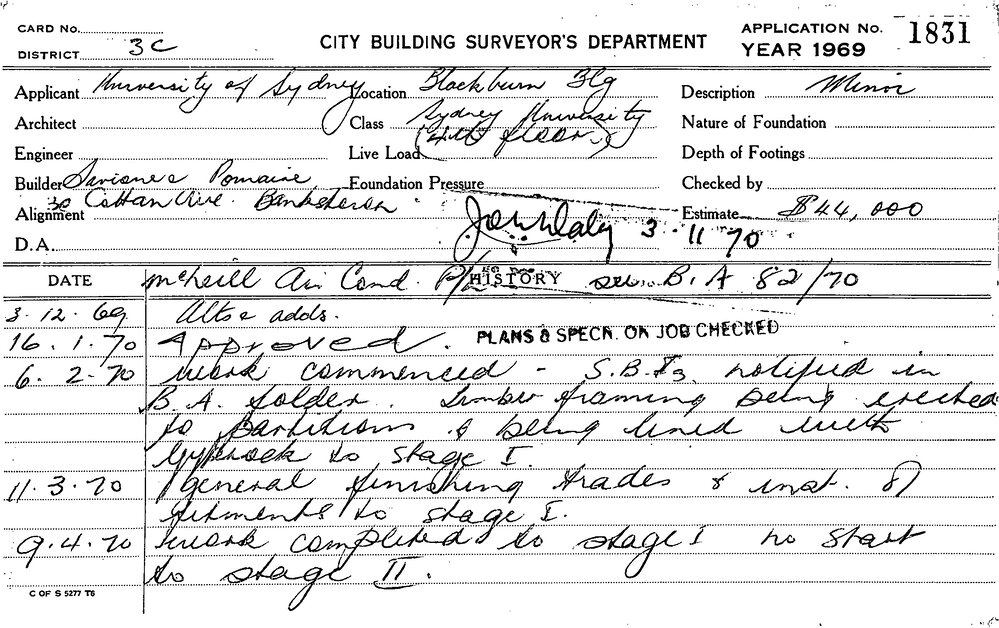 CARD No.
DISTRICT 3C
CITY BUILDING SURVEYOR'S DEPARTMENT
APPLICATION No. 1831
YEAR 1969
Applicant University of Sydney Location Blackburn Blg Description Minor
Architect Class Sydney University Nature of Foundation
Engineer Live Load (4th floor) Depth of Footings
Builder Foundation Pressure Checked by
30 Cottan Ave. Bankstown
Alignment Estimate $44,000
D.A. 3.11 70
DATE McNeill Air Cond. P/L HISTORY see B.A 82/70
3.12.69 Alts & adds.
16.1.70 Approved. PLANS & SPECN. ON JOB CHECKED
6.2.70 Work commenced - S.B.I. notified in
B.A. folder. Timber framing being erected
to partitions & being lined with
Gyprock to stage I.
11.3.70 general finishing trades & inst. of
fitments to stage I.
9.4.70 Work completed to stage I no start
to stage II.
C OF S 5277 T6